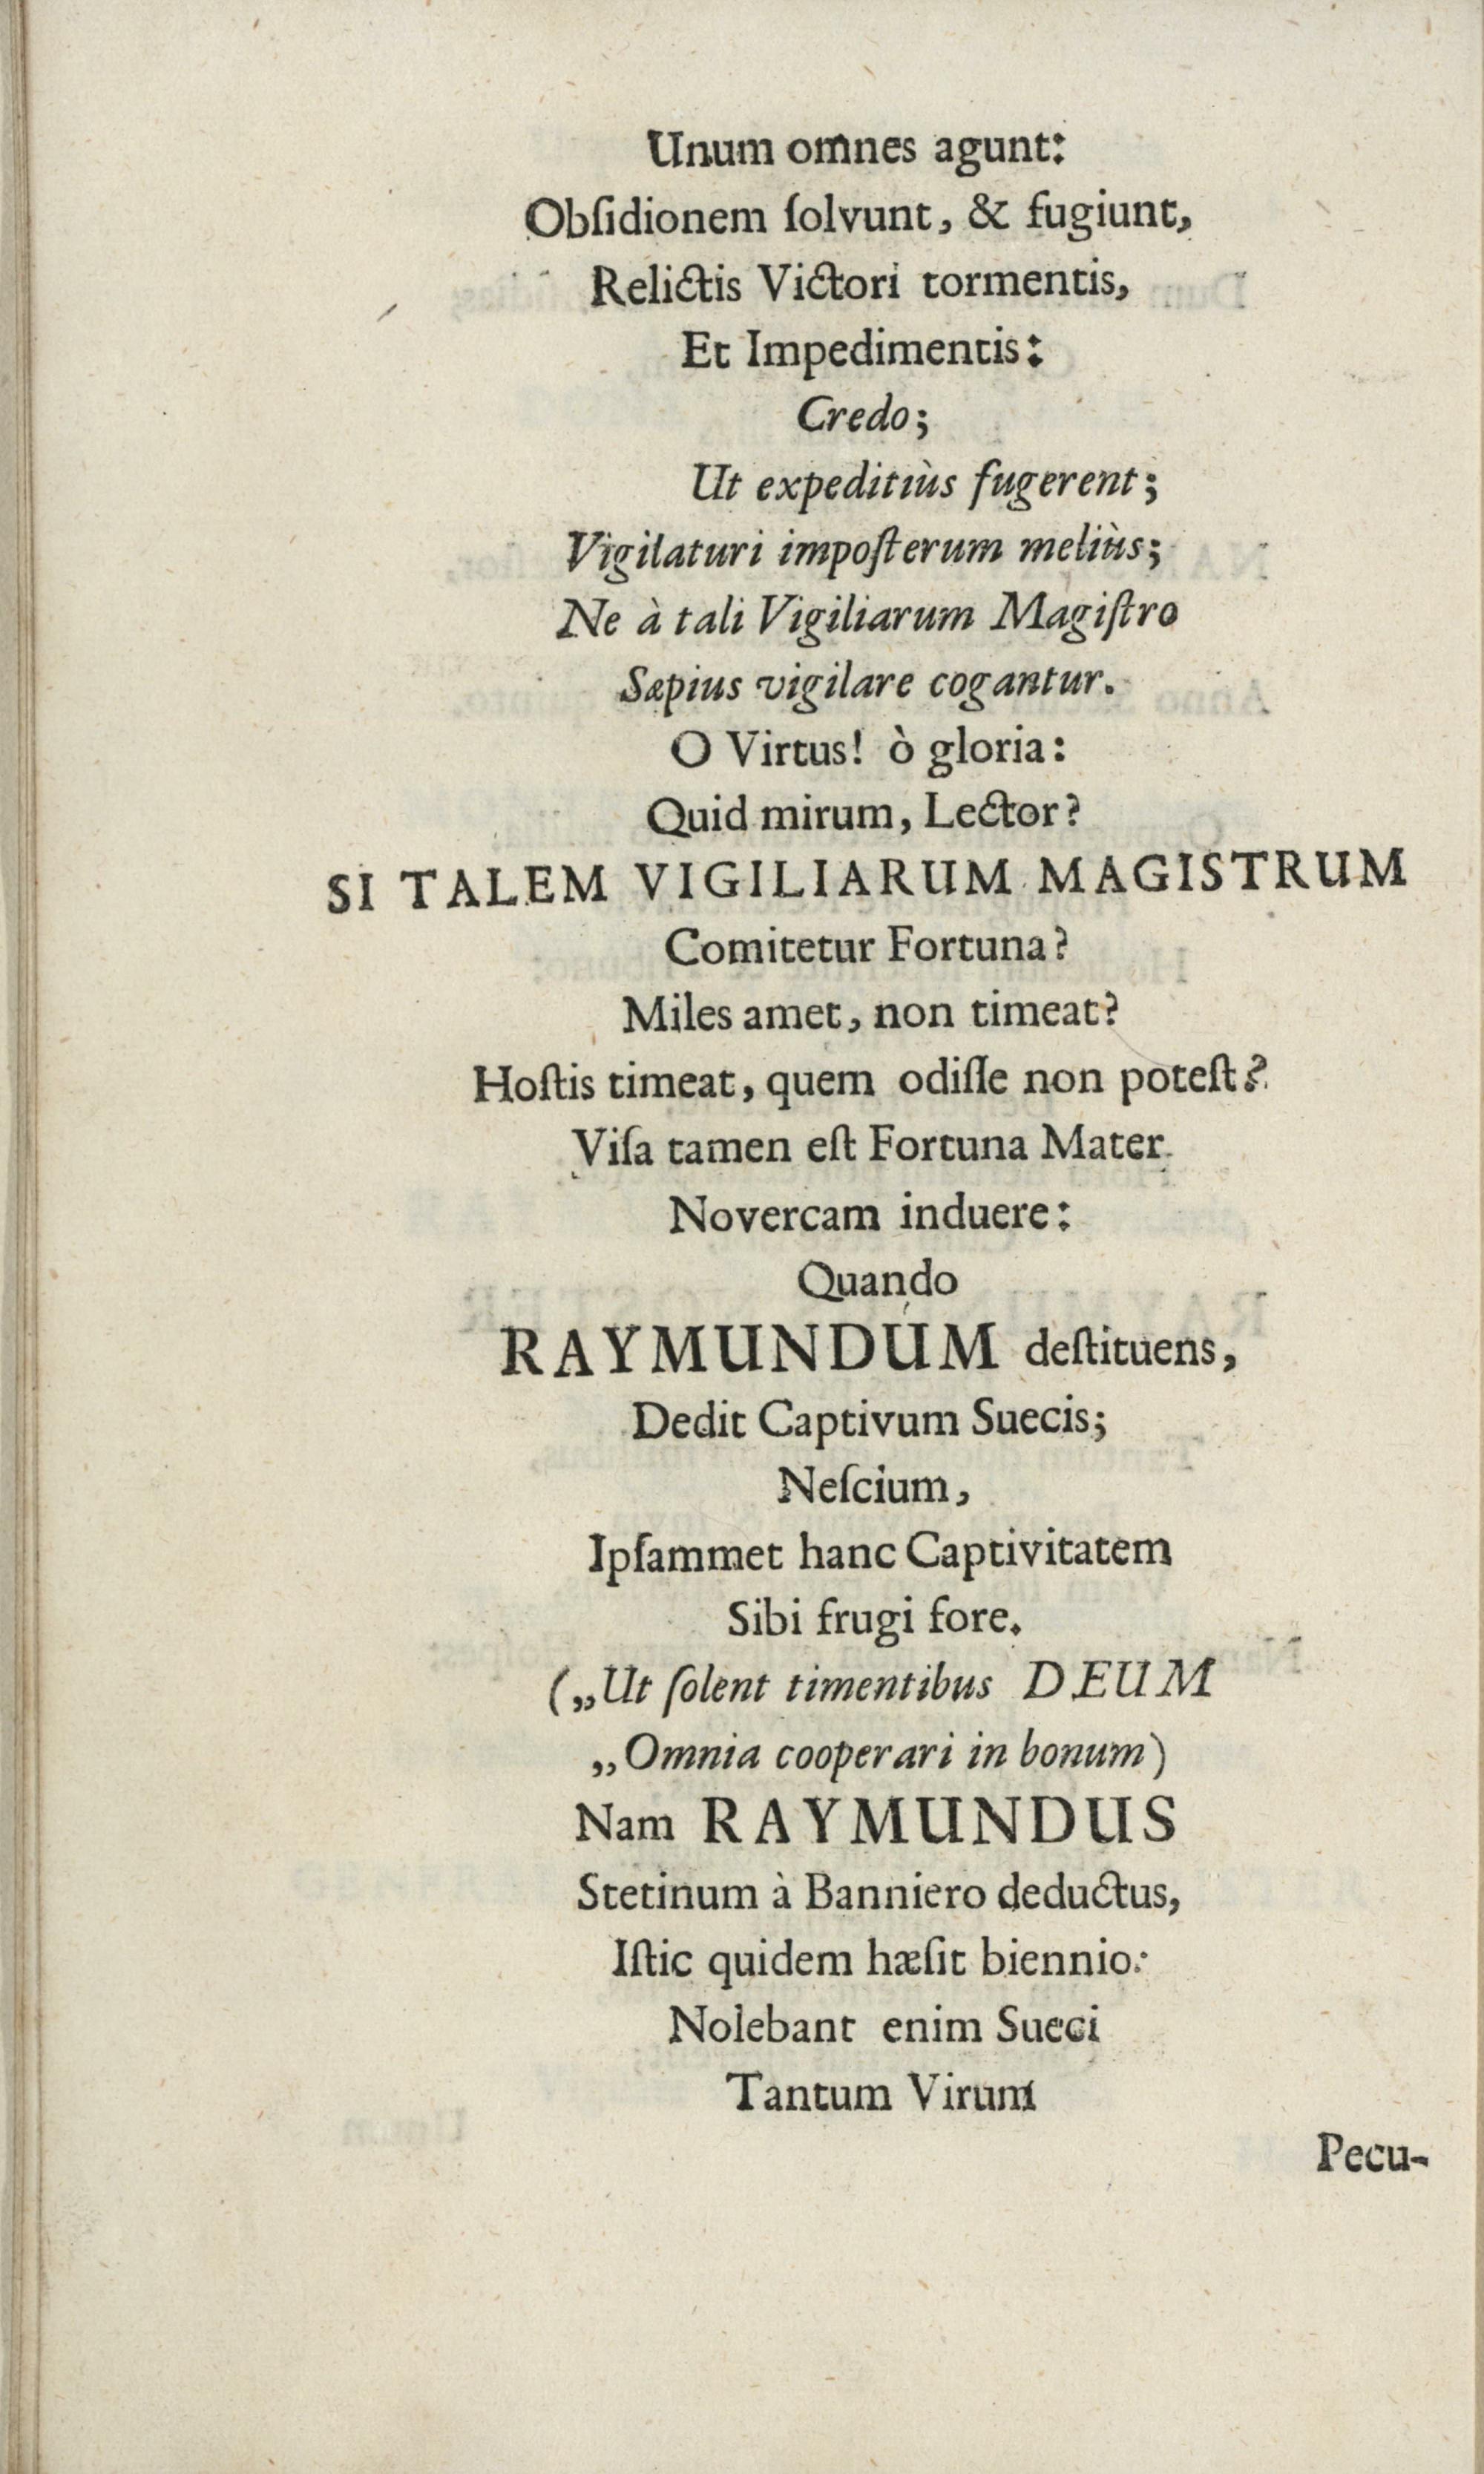 Unum omnes agunt:
Obſidionem ſolvunt, & fugiunt,
Relictis Victori tormentis,
Et Impedimentis:
Credo;
Ut expeditiùs fugerent;
Vigilaturi impoſterum meliùs;
Ne à tali Vigiliarum Magiſtro
Sæpius vigilare cogantur.
O Virtus! ò gloria:
Quid mirum, Lector?
SI TALEM VIGILIARUM MAGISTRUM
Comitetur Fortuna?
Miles amet, non timeat?
Hoſtis timeat, quem odiſſe non poteſt?
Viſa tamen eſt Fortuna Mater
Novercam induere:
Quando
RAYMUNDUM deſtituens,
Dedit Captivum Suecis;
Neſcium,
Ipſammet hanc Captivitatem
Sibi frugi fore.
(„Ut ſolent timentibus DEUM
„Omnia cooperari in bonum)
Nam RAYMUNDUS
Stetinum à Banniero deductus,
Iſtic quidem hæſit biennio:
Nolebant enim Sueci
Tantum Virum
Pecu-